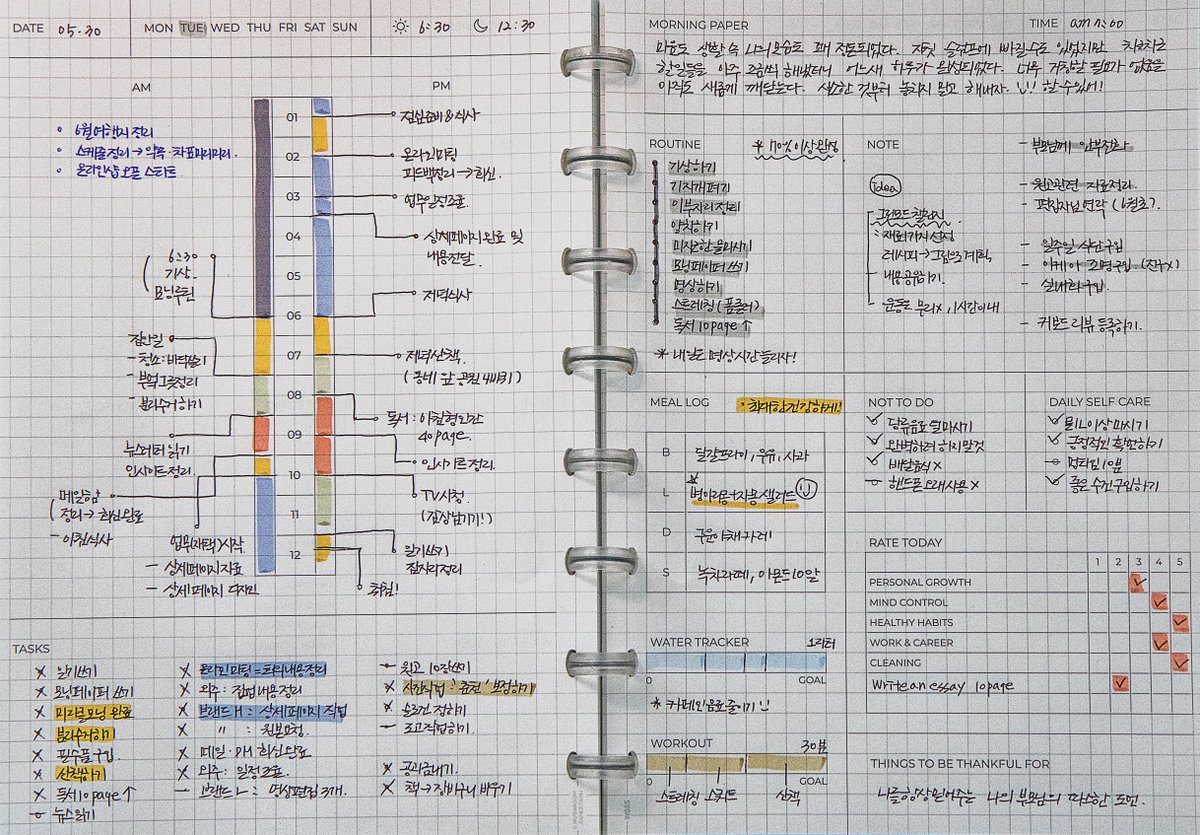 DATE 05.30 MON TUE WED THU FRI SAT SUN 6:30 12:30
AM
PM
6월여행지 정리
스케줄정리→약속·차표미리미리.
온라인샵 오픈 스타트
01
02
03
04
05
06
07
08
09
10
11
12
6:30
기상.
모닝루틴
집안일
- 청소:바닥쓸기
- 부엌그릇정리
- 분리수거하기
뉴스레터 읽기
인사이트정리.
메일확인
정리→회신완료
- 아침식사
업무(재택)시작
- 상세페이지 자료
- 상세페이지 디자인
점심준비&식사
온라인미팅
피드백정리→회신.
업무일정조율.
상세페이지 완료 및
내용전달.
저녁식사
저녁산책.
(동네 앞 공원 4바퀴)
독서: 아침형인간
40page.
인사이트정리.
TV시청.
일기쓰기
잠자리정리
취침!
TASKS
× 일기쓰기
× 모닝페이퍼 쓰기
× 미라클모닝 완료
× 분리수거하기
× 필수품구입.
× 산책하기
× 독서 10page↑
뉴스읽기
× 온라인미팅 = 회의내용정리
× 외주: 점검내용정리
× 브랜드 H: 상세페이지 작업
× 〃 : 원본요청.
× 메일·PM 회신완료
× 외주: 일정조율.
- 브랜드 L: 영상편집 3개.
- 원고 10장쓰기
× 시안작업: 보정하기
× 공과금내기.
× 책→장바구니 비우기
MORNING PAPER TIME am 7:00
마음도 생활 속 나의모습도 꽤 정돈되었다. 자칫 슬럼프에 빠질수도 있었지만 차근차근
할일들을 아주 조금씩 해냈더니 어느새 하루가 완성되었다. 너무 거창할 필요가 없음을
아직도 새롭게 깨닫는다. 사소한 것부터 놓치지 말고 해내자. 할 수있어!
ROUTINE * 70%이상완성
기상하기
기지개펴기
이부자리 정리
양치하기
미지근한물마시기
모닝페이퍼 쓰기
명상하기
스트레칭 (폼롤러)
독서 10page↑
* 내일도 명상시간 늘리자!
NOTE
Idea
그림모드 챌린지
: 재료가지 선정
레시피→그림으로 계획.
- 내용공유하기.
- 운동도 무리×, 1시간이내
- 부모님께 안부전화
- 원고관련 자료정리.
- 편집자님 연락 (6월초?.
- 일주일 식단구입
- 이케아 조명구입 (전구×)
- 실내화구입.
- 키보드 리뷰 등록하기.
MEAL LOG • 최대한건강하게!
B 달걀프라이, 우유, 사과
L 병아리콩+자몽샐러드
D 구운야채카레
S 녹차라떼, 아몬드10알
NOT TO DO
당류음료 덜마시기
완벽하려 하지말것
배달음식×
핸드폰 오래사용×
DAILY SELF CARE
물1L이상 마시기
긍정적인 확언하기
멍타임 10분
좋은 습관구입하기
RATE TODAY
1 2 3 4 5
PERSONAL GROWTH
MIND CONTROL
HEALTHY HABITS
WORK & CAREER
CLEANING
Write an essay 10page
WATER TRACKER 1리터
0 GOAL
* 카페인음료줄이기
WORKOUT 30분
0 GOAL
스트레칭 스쿼트 산책
THINGS TO BE THANKFUL FOR
나를항상믿어주는 나의 부모님의 따스한 조언.